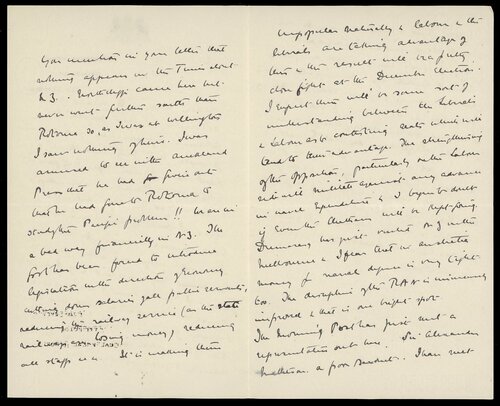 You mention in your letter that
nothing appears in the Times about
N.Z. Northcliffe came here but
never went further south than
Rotorua so, as I was at Wellington
I saw nothing of him. I was
amused to see in the Auckland
Press that he had
that he had gone to Rotorua to
study the Pacific problem!! We are in
a bad way financially in N.Z. The
Govt has been forced to introduce
legislation in the direction of economy
cutting down salaries of all public servants,
reducing the railway service (as the state
railways are losing money), reducing
all staffs It is making them
unpopular naturally & Labour & the
Liberals are taking advantage of
this & the result will be a pretty
close fight at the December Election.
I expect there will be some sort of
understanding between the Liberals
& Labour as to contesting seats which will
tend to their advantage. The strengthening
of the opposition, particularly on the Labour
side will militate against any advance
in naval expenditure & I begin to doubt
if even the Chatham will be kept going.
Dreyer has just visited me in the
Melbourne & I fear that in Australia
money for naval defence is very tight
too. The discipline of the RAN is immensely
improved & that is one bright spot.
The Morning Post has just sent a
representative out here. Sir Alexander
a poor I have met